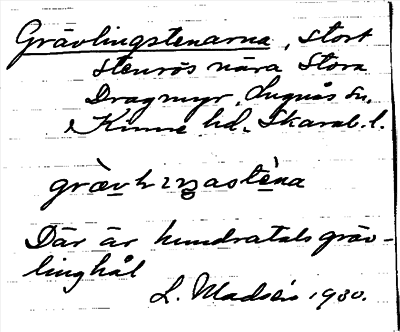 Grävlingstenarna, stort
stenrös nära Stora
Dragmyr, Lugnås sn,
Kinne hd., Skarab. l.
Där är hundratals gräv-
linghål
L. Madsén 1930.